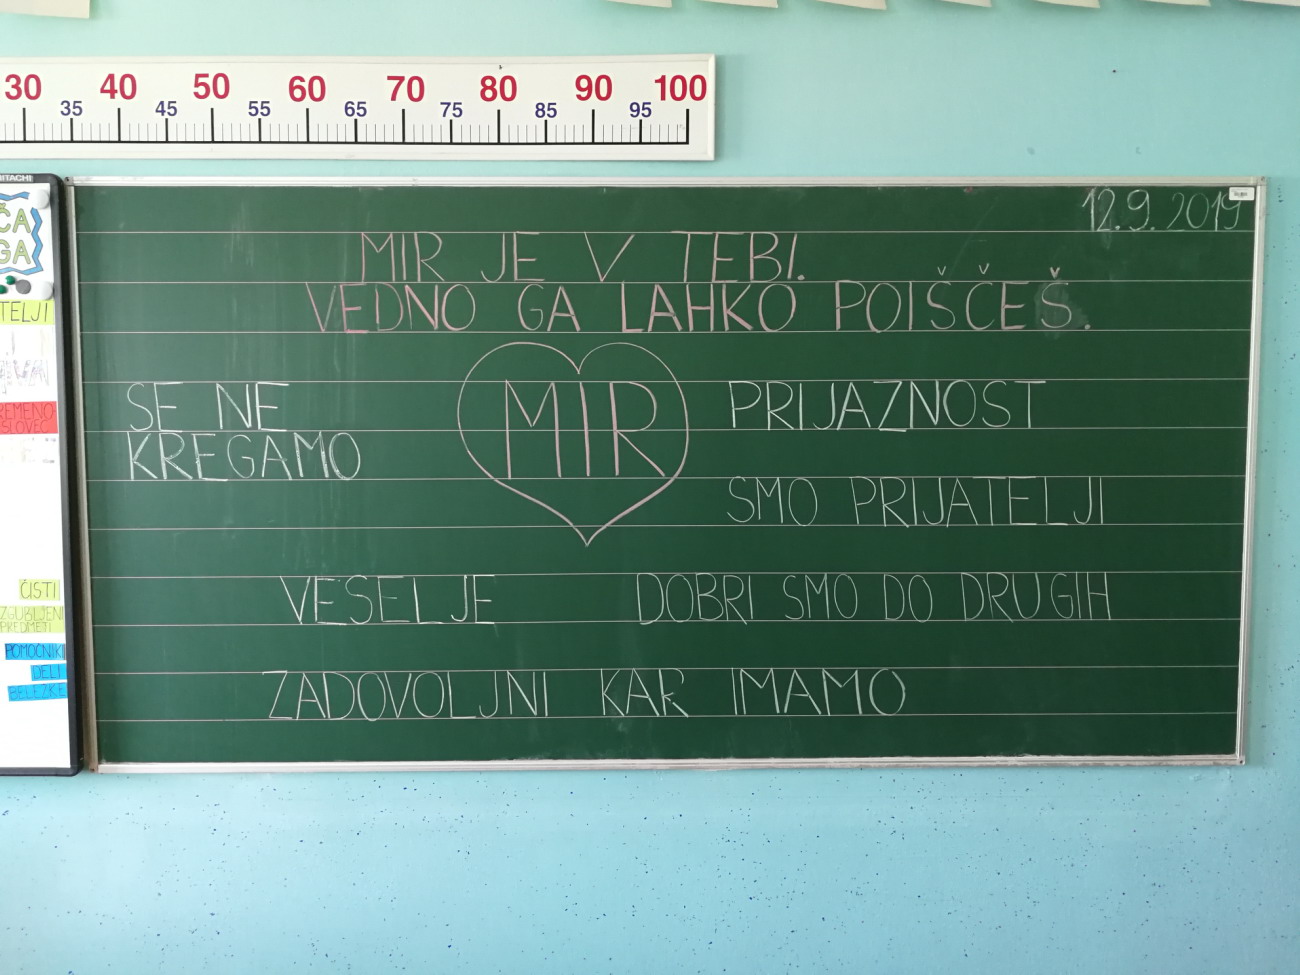 30 40 50 60 70 80 90 100
35 45 55 65 75 85 95
HITACHI
12.9.2019
MIR JE V TEBI.
VEDNO GA LAHKO POIŠČEŠ.
SE NE
KREGAMO
MIR
PRIJAZNOST
SMO PRIJATELJI
VESELJE
DOBRI SMO DO DRUGIH
ZADOVOLJNI KAR IMAMO
ČA
GA
TELJI
REMENO-
SLOVEC
ČISTI
IZGUBLJENI
PREDMETI
POMOČNIKI
DELI
BELEŽKE